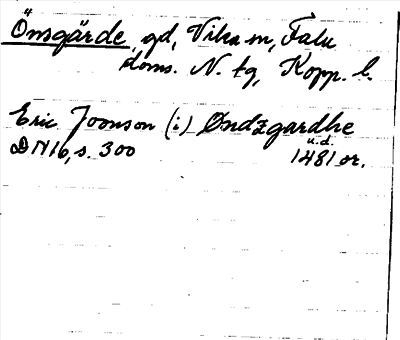 Önsgärde, gd, Vika sn, Falu
doms. N. tg, Kopp. l.
Eric Joonson (i) Øndzgardhe
DN 16, s. 300 u.d. 1481 or.